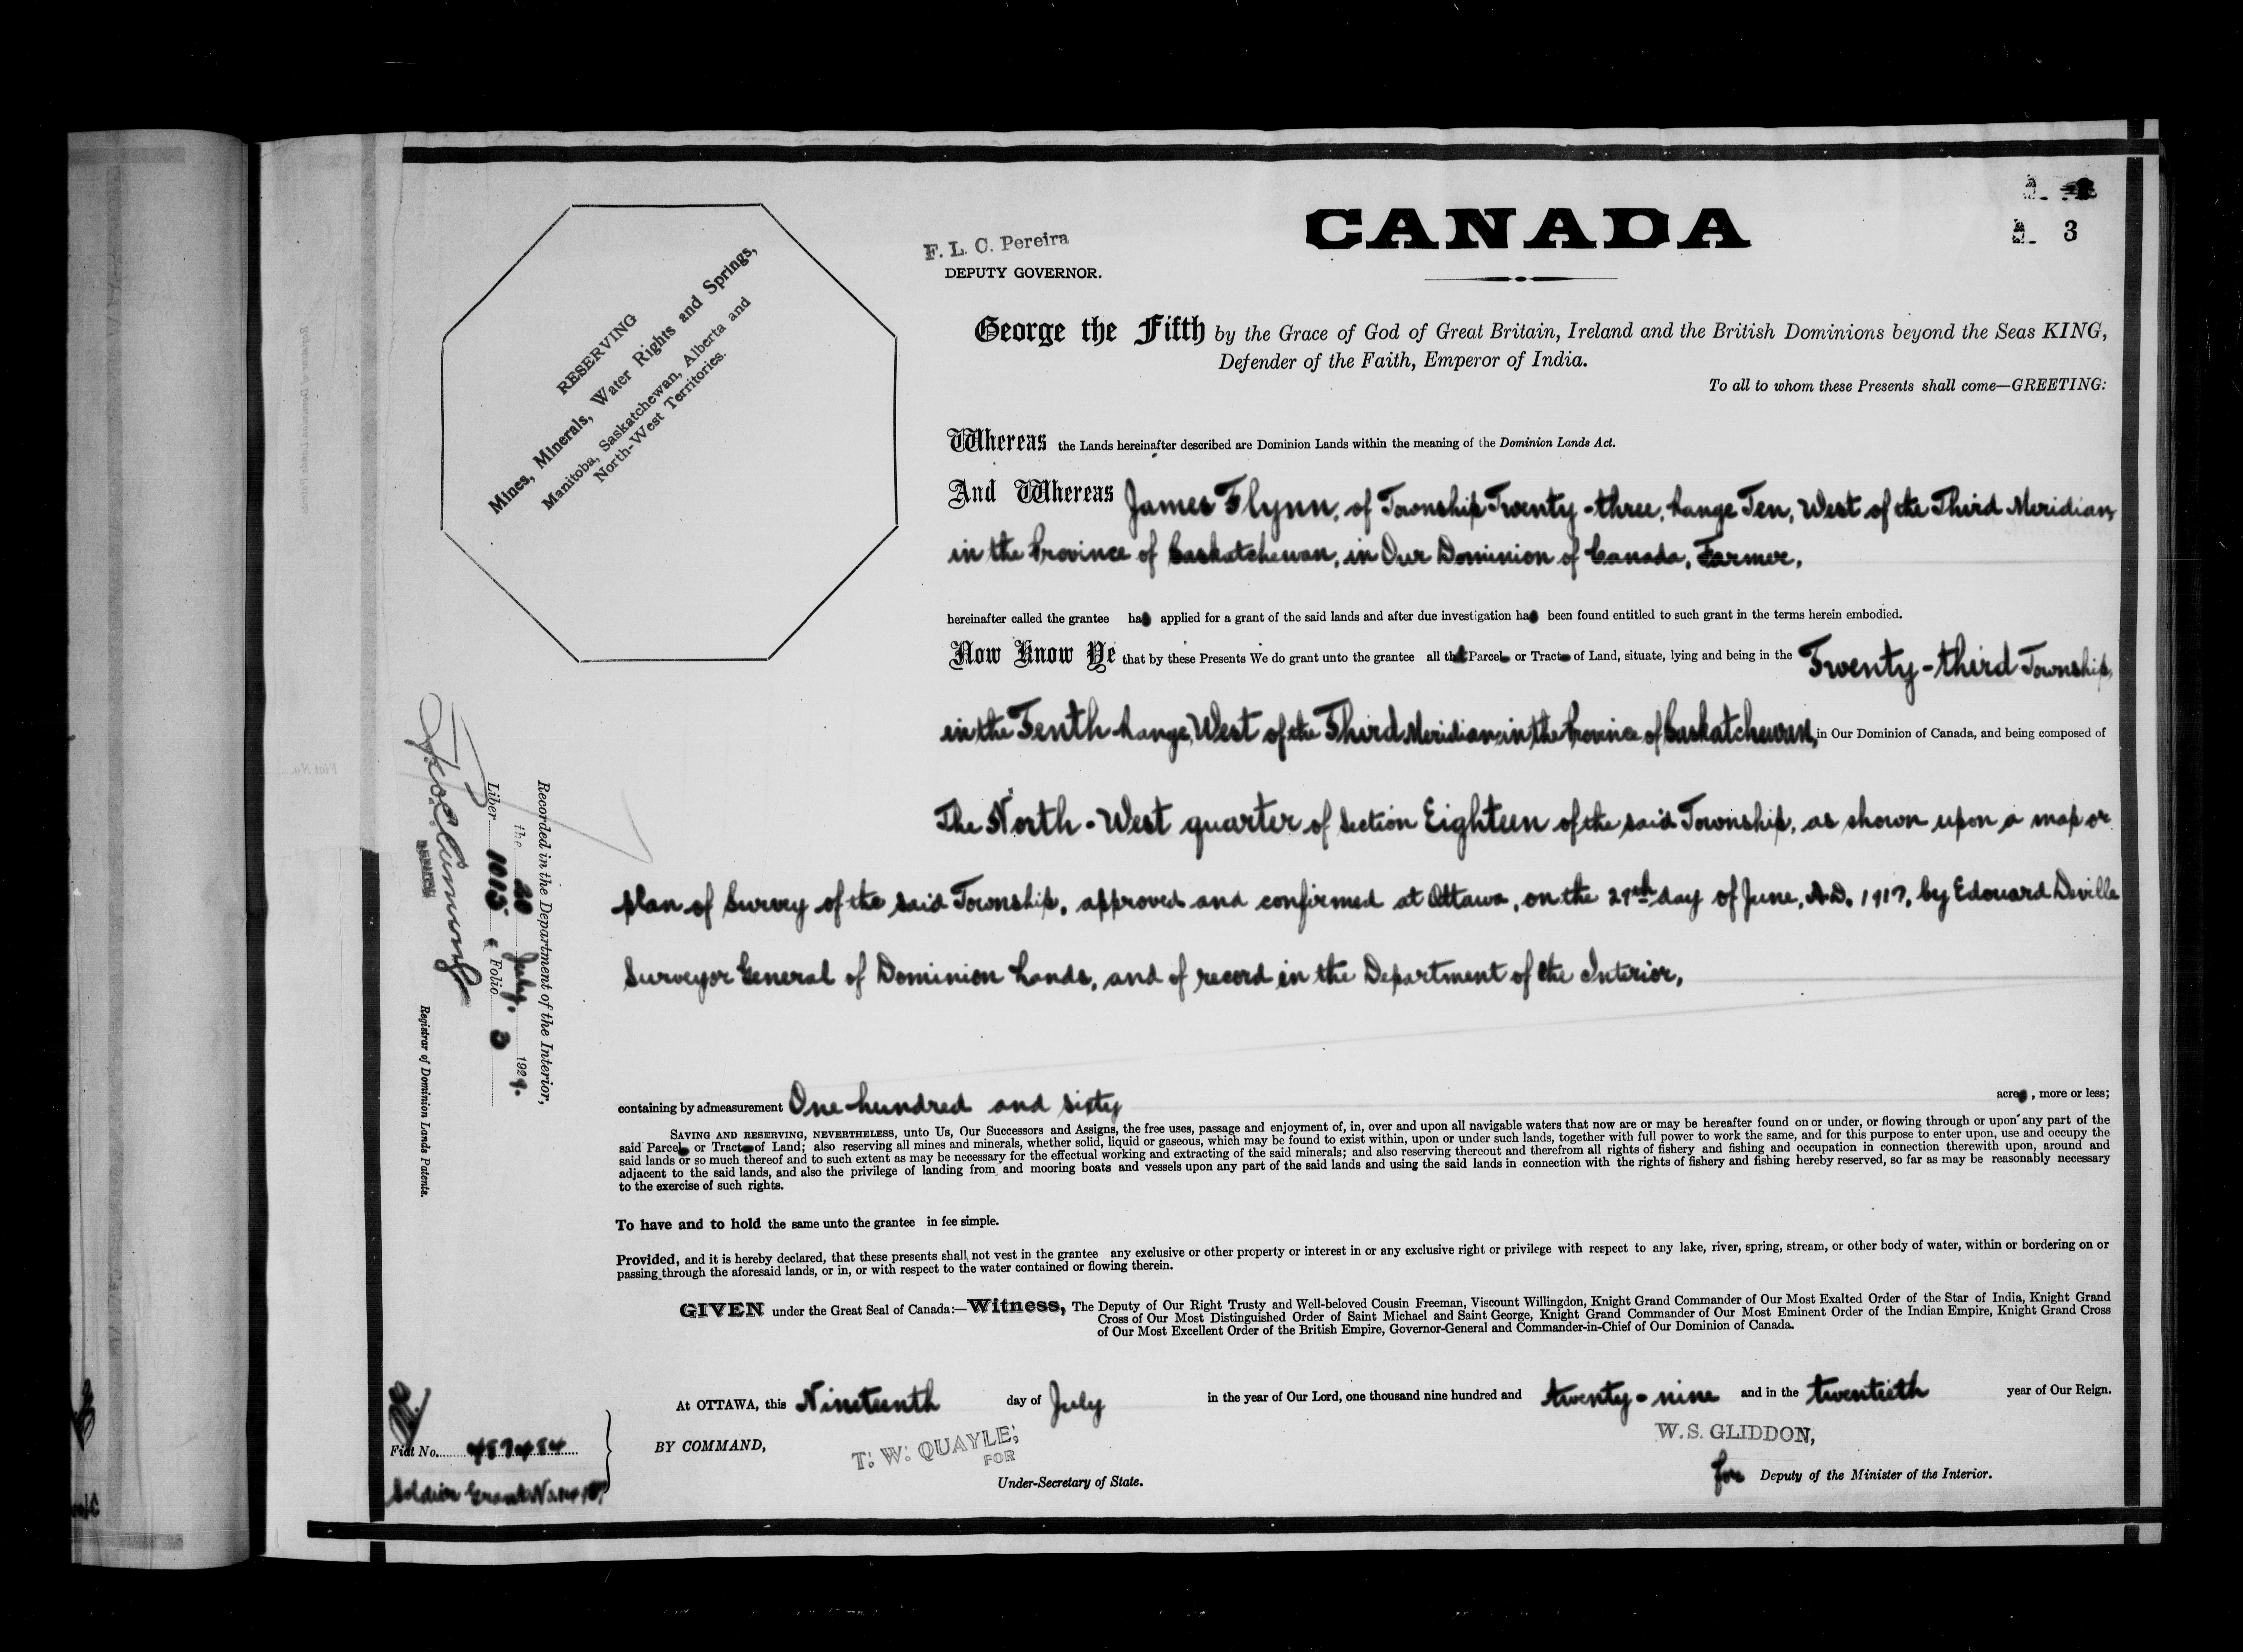 3
CANADA
F. L. C. Pereira
DEPUTY GOVERNOR.
RESERVING
Mines, Minerals, Water Rights and Springs,
Manitoba, Saskatchewan, Alberta and
North-West Territories.
George the Fifth by the Grace of God of Great Britain, Ireland and the British Dominions beyond the Seas KING,
Defender of the Faith, Emperor of India.
To all to whom these Presents shall come—GREETING:
Whereas the Lands hereinafter described are Dominion Lands within the meaning of the Dominion Lands Act.
And Whereas James Flynn, of Township Twenty-three, Range Ten, West of the Third Meridian,
in the Province of Saskatchewan, in Our Dominion of Canada, Farmer,
hereinafter called the grantee has applied for a grant of the said lands and after due investigation has been found entitled to such grant in the terms herein embodied.
Now Know Ye that by these Presents We do grant unto the grantee all that Parcel or Tract of Land, situate, lying and being in the Twenty-third Township,
in the Tenth Range, West of the Third Meridian, in the Province of Saskatchewan, in Our Dominion of Canada, and being composed of
The North-West quarter of Section Eighteen of the said Township, as shown upon a map or
plan of Survey of the said Township, approved and confirmed at Ottawa, on the day of June, A.D. 1917, by Edouard Deville
Surveyor General of Dominion Lands, and of record in the Department of the Interior,
containing by admeasurement One hundred and sixty acres, more or less;
SAVING AND RESERVING, NEVERTHELESS, unto Us, Our Successors and Assigns, the free uses, passage and enjoyment of, in, over and upon all navigable waters that now are or may be hereafter found on or under, or flowing through or upon any part of the
said Parcel or Tract of Land; also reserving all mines and minerals, whether solid, liquid or gaseous, which may be found to exist within, upon or under such lands, together with full power to work the same, and for this purpose to enter upon, use and occupy the
said lands or so much thereof and to such extent as may be necessary for the effectual working and extracting of the said minerals; and also reserving thereout and therefrom all rights of fishery and fishing and occupation in connection therewith upon, around and
adjacent to the said lands, and also the privilege of landing from and mooring boats and vessels upon any part of the said lands and using the said lands in connection with the rights of fishery and fishing hereby reserved, so far as may be reasonably necessary
to the exercise of such rights.
To have and to hold the same unto the grantee in fee simple.
Provided, and it is hereby declared, that these presents shall not vest in the grantee any exclusive or other property or interest in or any exclusive right or privilege with respect to any lake, river, spring, stream, or other body of water, within or bordering on or
passing through the aforesaid lands, or in, or with respect to the water contained or flowing therein.
GIVEN under the Great Seal of Canada:—Witness, The Deputy of Our Right Trusty and Well-beloved Cousin Freeman, Viscount Willingdon, Knight Grand Commander of Our Most Exalted Order of the Star of India, Knight Grand
Cross of Our Most Distinguished Order of Saint Michael and Saint George, Knight Grand Commander of Our Most Eminent Order of the Indian Empire, Knight Grand Cross
of Our Most Excellent Order of the British Empire, Governor-General and Commander-in-Chief of Our Dominion of Canada.
At OTTAWA, this Nineteenth day of July in the year of Our Lord, one thousand nine hundred and twenty-nine and in the twentieth year of Our Reign.
BY COMMAND,
T. W. QUAYLE,
FOR
Under-Secretary of State.
W. S. GLIDDON,
for Deputy of the Minister of the Interior.
Recorded in the Department of the Interior,
the 20 July, 1929.
Liber 1015 Folio 3
Registrar of Dominion Lands Patents.
Fiat No. 457484
Soldier Grant No.